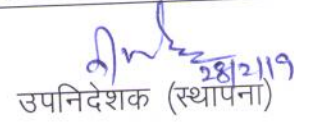 28/2/19
उपनिदेशक (स्थापना)